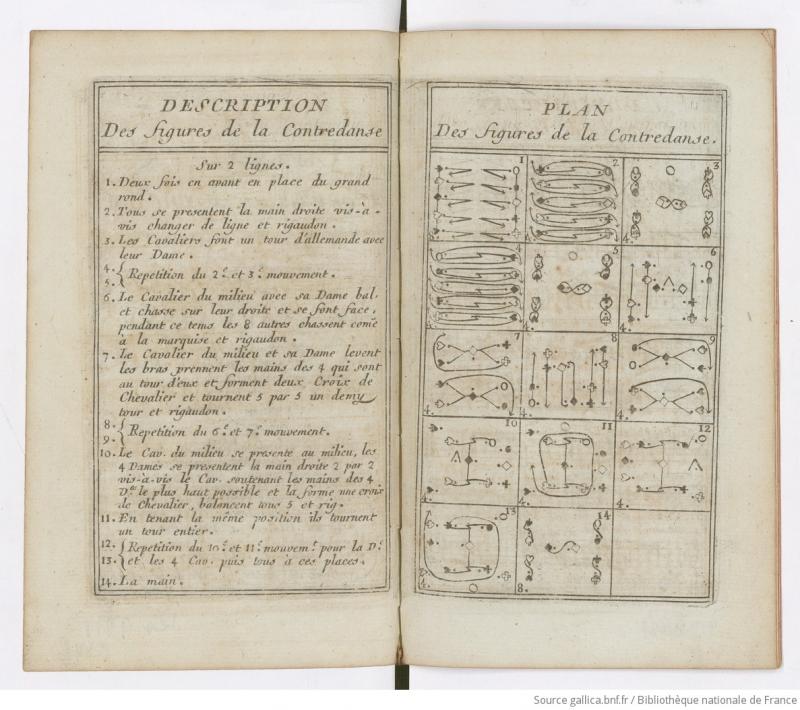 DESCRIPTION
Des figures de la Contredanse
Sur 2 lignes.
1. Deux fois en avant en place du grand
rond.
2. Tous se presentent la main droite vis-à-
vis changer de ligne et rigaudon.
3. Les Cavaliers font un tour d'allemande avec
leur Dame.
4. { Repetition du 2.e et 3.e mouvement.
5.
6. Le Cavalier du milieu avec sa Dame bal.
et chasse sur leur droite et se font face,
pendant ce tems les 8 autres chassent comẽ
à la marquise et rigaudon.
7. Le Cavalier du milieu et sa Dame levent
les bras prennent les mains des 4 qui sont
au tour d'eux et forment deux Croix de
Chevalier et tournent 5 par 5 un demy
tour et rigaudon.
8. { Repetition du 6.e et 7.e mouvement.
9.
10. Le Cav. du milieu se presente au milieu, les
4 Dames se presentent la main droite 2 par 2
vis-à-vis le Cav. soutenant les mains des 4
D.es le plus haut possible et la forme une croix
de Chevalier, balancent tous 5 et rig.
11. En tenant la même position ils tournent
un tour entier.
12. { Repetition du 10.e et 11.e mouvem.t pour la D.e
13. et les 4 Cav. puis tous a ces places.
14. La main.
PLAN
Des figures de la Contredanse.
1 2 3
4. 4. 4.
5 6
4. 4.
7 8 9
4. 4. 4.
10 11 12
4. 4. 4.
13 14
4. 8.
Source gallica.bnf.fr / Bibliothèque nationale de France